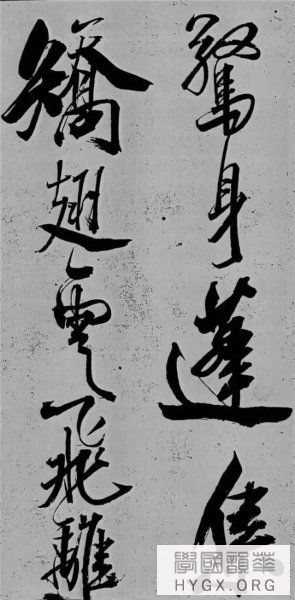 驚身蓬
矯翅雪飛離
華韻國學
HYGX.ORG